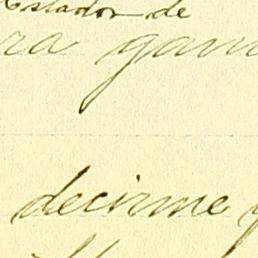 Estador de
ra gam
decirme